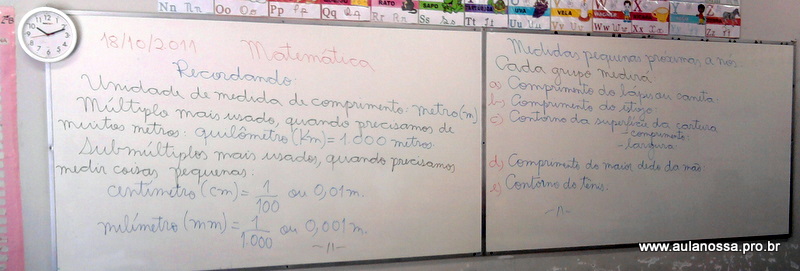 Nn Nn Oo Oo Pp Pp Qq Qq Rr Rr Ss Ss Tt Tt Uu Uu Vv Vv Ww Ww Xx Xx
RATO
SAPO
UVA
VELA
18/10/2011 Matemática
Recordando:
Unidade de medida de comprimento: metro(m)
Múltiplo mais usado, quando precisamos de
muitos metros: quilômetro (km) = 1.000 metros
Submúltiplos mais usados, quando precisamos
medir coisas pequenas:
centímetro (cm) = 1/100 ou 0,01 m.
milímetro (mm) = 1/1.000 ou 0,001 m.
-//-
Medidas pequenas próximas a nós.
Cada grupo medirá
a) Comprimento do lápis ou caneta
b) Comprimento do estojo:
c) Contorno da superfície da carteira
- comprimento:
- largura:
d) Comprimento do maior dedo da mão:
e) Contorno do tênis:
-//-
www.aulanossa.pro.br